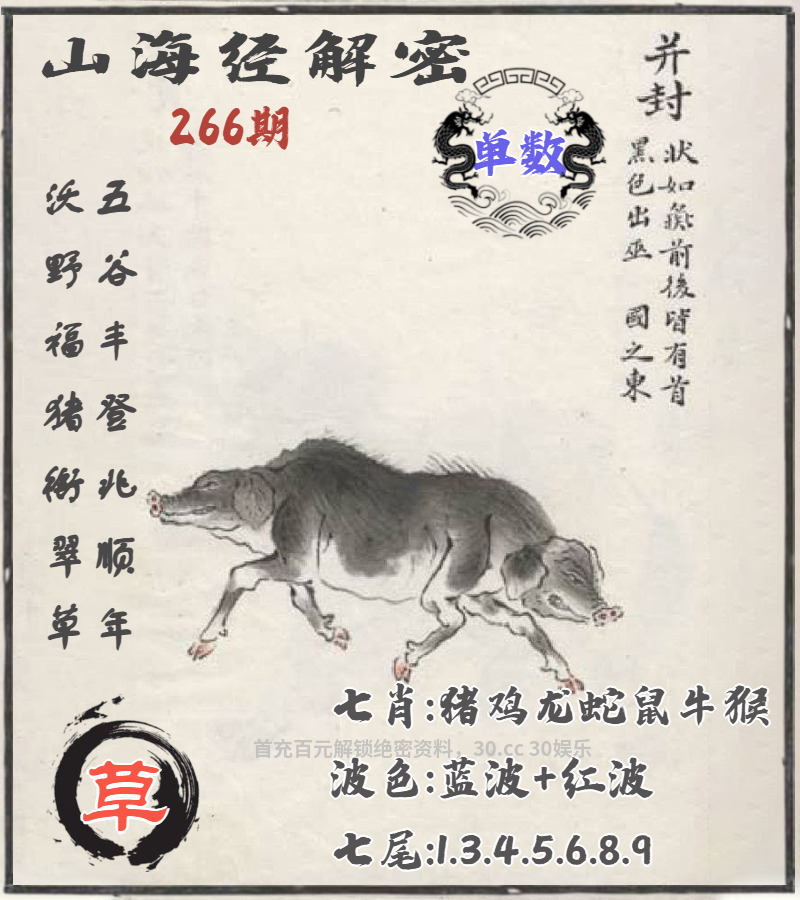 山海经解密
266期
单数
并封
状如彘前後皆有首
黑色出巫 國之東
五谷丰登兆顺年
沃野福猪衔翠草
七肖:猪鸡龙蛇鼠牛猴
首充百元解锁绝密资料，30.cc 30娱乐
波色:蓝波+红波
草
七尾:1.3.4.5.6.8.9